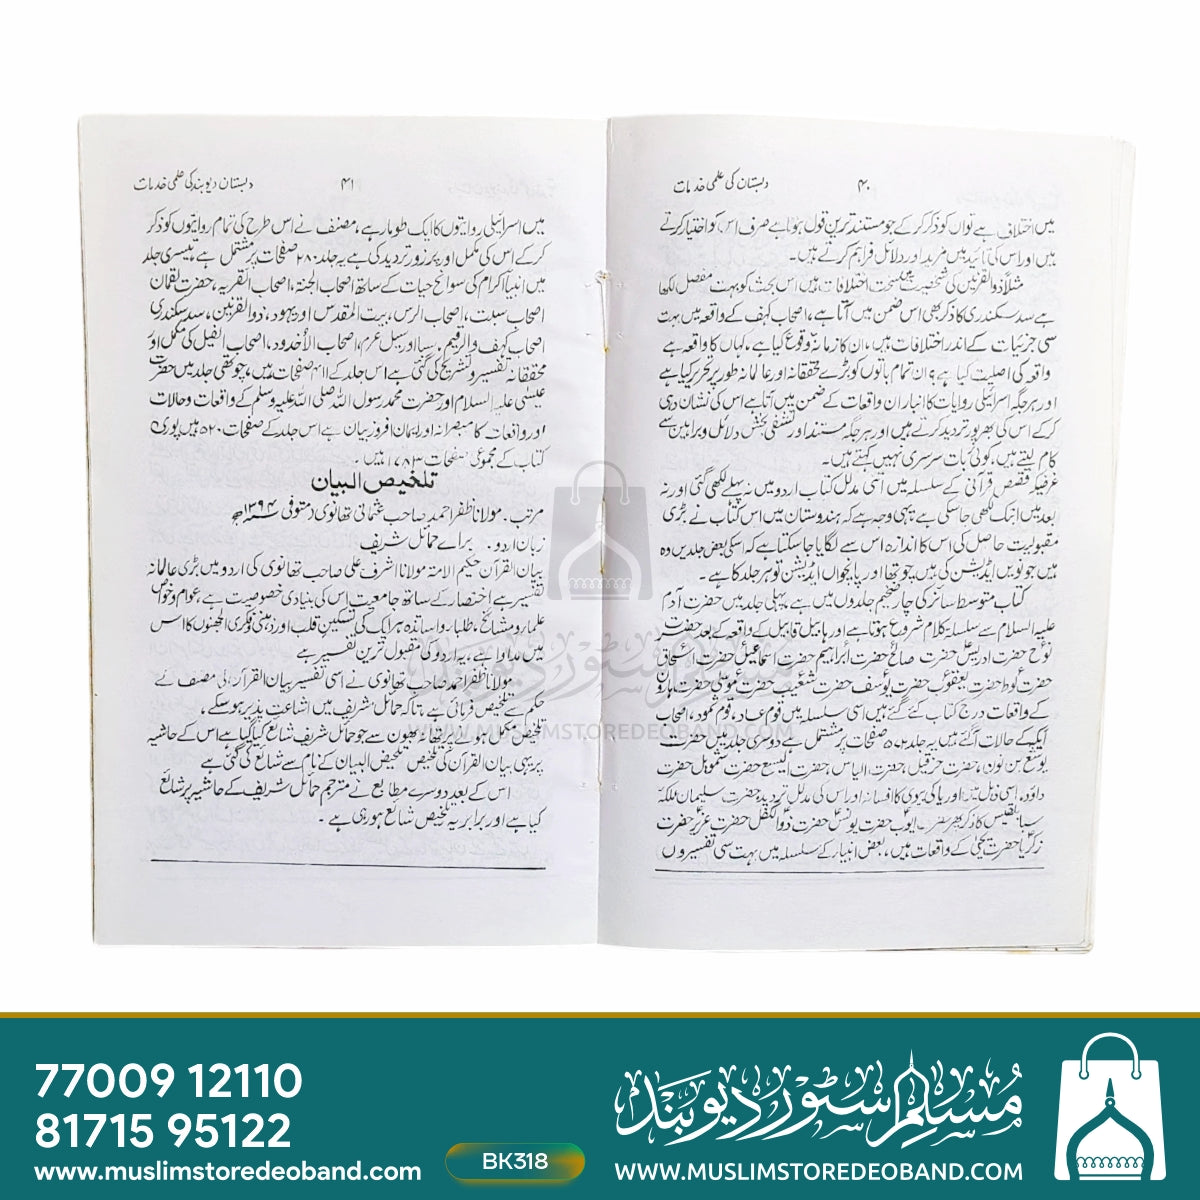 ۴۰ دبستان کی علمی خدمات
میں اختلاف ہے تو ان کو ذکر کر کے جو مستند ترین قول ہوتا ہے صرف اس کو اختیار کرتے
ہیں اور اس کی تائید میں مزید اور دلائل فراہم کرتے ہیں۔
مثلاً ذوالقرنین کی شخصیت میں سخت اختلافات ہیں اس بحث کو بہت مفصل لکھا
ہے سد سکندری کا ذکر بھی اس ضمن میں آتا ہے، اصحاب کہف کے واقعہ میں بہت
سی جزئیات کے اندر اختلافات ہیں، ان کا زمانۂ وقوع کیا ہے، کہاں کا واقعہ ہے
واقعہ کی اصلیت کیا ہے؟ ان تمام باتوں کو بڑے محققانہ اور عالمانہ طور پر تحریر کیا ہے
اور ہر جگہ اسرائیلی روایات کا انبار ان واقعات کے ضمن میں آتا ہے اس کی نشان دہی
کر کے اس کی بھرپور تردید کرتے ہیں اور ہر جگہ مستند اور تشفی بخش دلائل و براہین سے
کام لیتے ہیں، کوئی بات سرسری نہیں کہتے ہیں۔
غرضیکہ قصص قرآنی کے سلسلہ میں اتنی مدلل کتاب اردو میں نہ پہلے لکھی گئی اور نہ
بعد میں ابتک لکھی جاسکی ہے یہی وجہ ہے کہ ہندوستان میں اس کتاب نے بڑی
مقبولیت حاصل کی اس کا اندازہ اس سے لگایا جاسکتا ہے کہ اسکی بعض جلدیں وہ
ہیں جو نویں ایڈیشن کی ہیں، چوتھا اور پانچواں ایڈیشن تو ہر جلد کا ہے۔
کتاب متوسط سائز کی چار ضخیم جلدوں میں ہے پہلی جلد میں حضرت آدم
علیہ السلام سے سلسلہ کلام شروع ہوتا ہے اور ہابیل قابیل کے واقعہ کے بعد حضرت
نوح حضرت ادریس حضرت صالح حضرت ابراہیم حضرت اسماعیل حضرت اسحٰق
حضرت لوط حضرت یعقوب حضرت یوسف حضرت شعیب حضرت موسیٰ حضرت ہارون
کے واقعات درج کتاب کئے گئے ہیں اسی سلسلہ میں قوم عاد، قوم ثمود، اصحاب
ایکہ کے حالات آگئے ہیں یہ جلد صفحات پر مشتمل ہے دوسری جلد میں حضرت
یوشع بن نون، حضرت حزقیل، حضرت الیاس، حضرت الیسع حضرت شموئیل حضرت
داؤد، اسی ذیل میں اور یا کی بیوی کا افسانہ اور اس کی مدلل تردید، حضرت سلیمان ملکہ
سبا بلقیس کا ذکر پھر حضرت ایوب حضرت یونس حضرت ذوالکفل حضرت عزیر حضرت
زکریا حضرت یحییٰ کے واقعات ہیں، بعض انبیاء کے سلسلہ میں بہت سی تفسیروں
۴۱ دبستان دیوبند کی علمی خدمات
میں اسرائیلی روایتوں کا ایک طومار ہے، مصنف نے اس طرح کی تمام روایتوں کو ذکر
کر کے اس کی مکمل اور پرزور تردید کی ہے یہ جلد ۲۸۰ صفحات پر مشتمل ہے تیسری جلد
میں انبیاء کرام کی سوانح حیات کے ساتھ اصحاب الجنۃ، اصحاب القریہ، حضرت لقمان
اصحاب سبت، اصحاب الرس، بیت المقدس اور یہود، ذوالقرنین، سد سکندری
اصحاب کہف والرقیم، سبا اور سیل عرم، اصحاب الأخدود، اصحاب الفیل کی مکمل اور
محققانہ تفسیر و تشریح کی گئی ہے اس جلد کے صفحات ہیں، چوتھی جلد میں حضرت
عیسیٰ علیہ السلام اور حضرت محمد رسول اللہ صلی اللہ علیہ وسلم کے واقعات و حالات
اور واقعات کا مبصرانہ اور ایمان افروز بیان ہے اس جلد کے صفحات ۵۲۰ ہیں پوری
کتاب کے مجموعی صفحات ۱۷۸۳ ہیں۔
تلخیص البیان
مرتب۔ مولانا ظفر احمد صاحب عثمانی تھانوی متوفی ۱۳۹۴ھ
زبان اردو۔ برائے حمائل شریف
بیان القرآن حکیم الامۃ مولانا اشرف علی صاحب تھانوی کی اردو میں بڑی عالمانہ
تفسیر ہے اختصار کے ساتھ جامعیت اس کی بنیادی خصوصیت ہے، عوام و خواص
علماء و مشائخ، طلباء و اساتذہ ہر ایک کی تسکین قلب اور ذہنی و فکری الجھنوں کا اس
میں مداوا ہے، یہ اردو کی مقبول ترین تفسیر ہے
مولانا ظفر احمد صاحب تھانوی نے اسی تفسیر بیان القرآن کی مصنف کے
حکم سے تلخیص فرمائی ہے، تاکہ حمائل شریف میں اشاعت پذیر ہوسکے،
تلخیص مکمل ہونے پر تھانہ بھون سے جو حمائل شریف شائع کیا گیا ہے اس کے حاشیہ
پر یہی بیان القرآن کی تلخیص تلخیص البیان کے نام سے شائع کی گئی ہے
اس کے بعد دوسرے مطابع نے مترجم حمائل شریف کے حاشیہ پر شائع
کیا ہے اور برابر یہ تلخیص شائع ہو رہی ہے۔
مسلم سٹور دیوبند
WWW.MUSLIMSTOREDEOBAND.COM
77009 12110
81715 95122
www.muslimstoredeoband.com
BK318
مسلم سٹور دیوبند
WWW.MUSLIMSTOREDEOBAND.COM